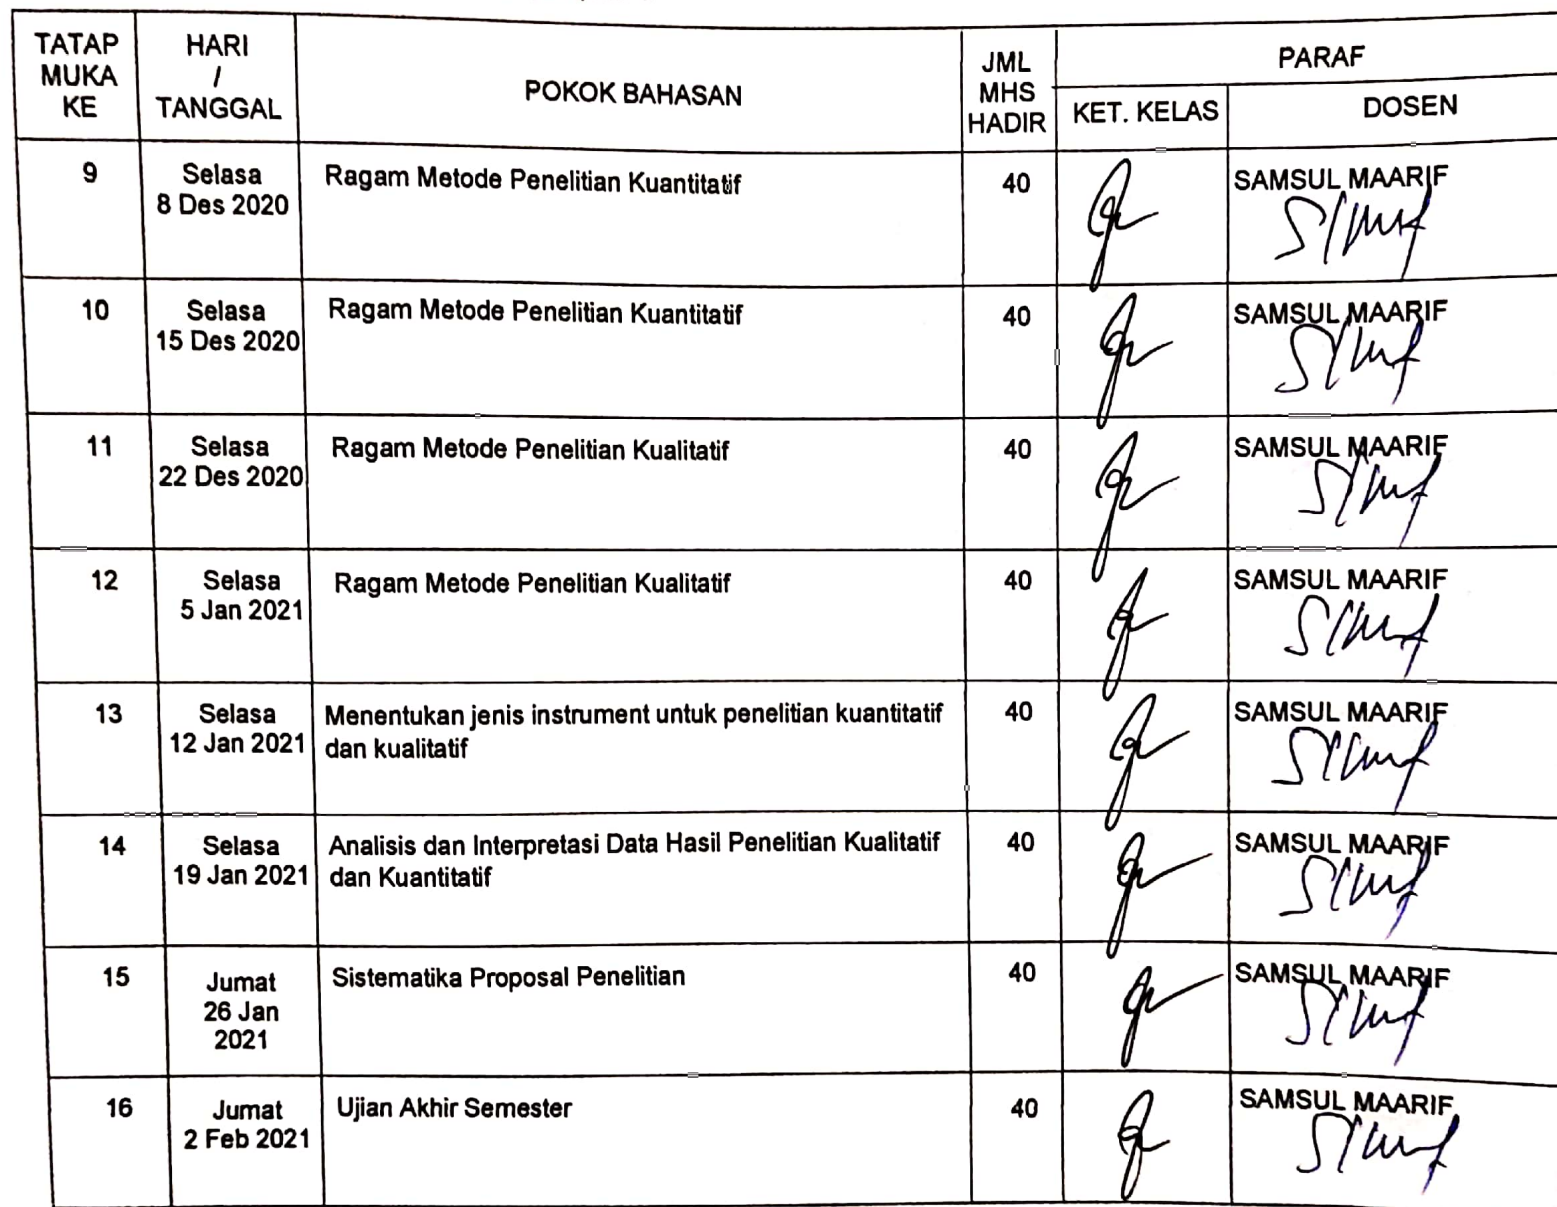 TATAP MUKA KE
HARI / TANGGAL
POKOK BAHASAN
JML MHS HADIR
PARAF
KET. KELAS
DOSEN
9
Selasa
8 Des 2020
Ragam Metode Penelitian Kuantitatif
40
SAMSUL MAARIF
10
Selasa
15 Des 2020
Ragam Metode Penelitian Kuantitatif
40
SAMSUL MAARIF
11
Selasa
22 Des 2020
Ragam Metode Penelitian Kualitatif
40
SAMSUL MAARIF
12
Selasa
5 Jan 2021
Ragam Metode Penelitian Kualitatif
40
SAMSUL MAARIF
13
Selasa
12 Jan 2021
Menentukan jenis instrument untuk penelitian kuantitatif
dan kualitatif
40
SAMSUL MAARIF
14
Selasa
19 Jan 2021
Analisis dan Interpretasi Data Hasil Penelitian Kualitatif
dan Kuantitatif
40
SAMSUL MAARIF
15
Jumat
26 Jan
2021
Sistematika Proposal Penelitian
40
SAMSUL MAARIF
16
Jumat
2 Feb 2021
Ujian Akhir Semester
40
SAMSUL MAARIF